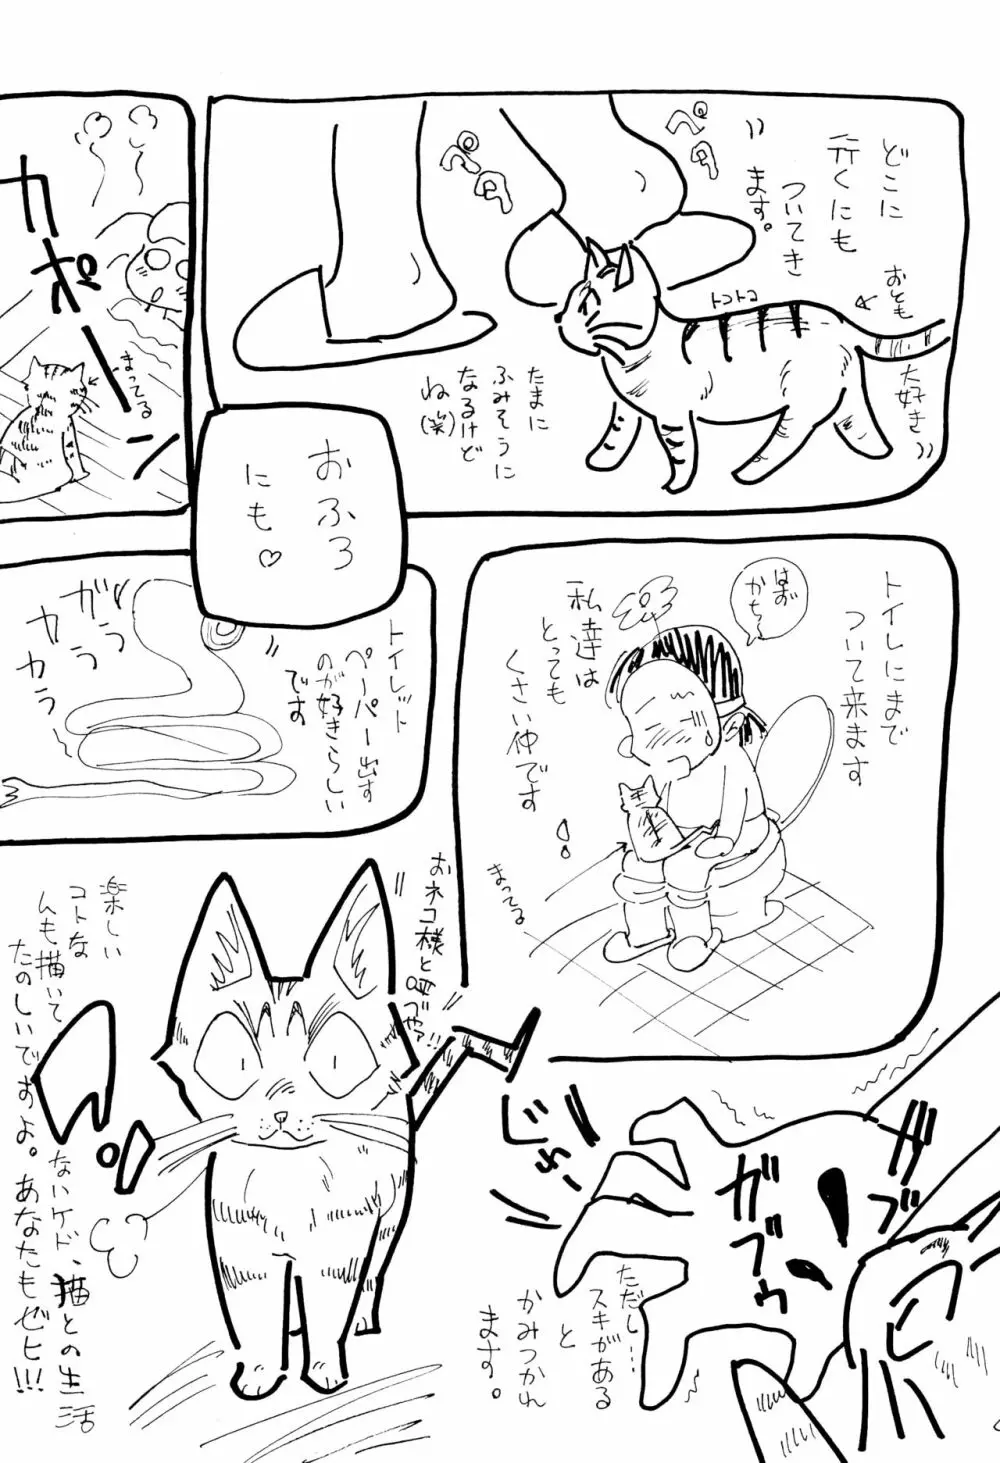 どこに
行くにも
ついてき
ます。
ペタ
ペタ
おとも
大好き
トコトコ
たまに
ふみそうに
なるけど
ね(笑)
おふろ
にも♡
カポーン
まってる
トイレにまで
ついて来ます
はお
かちー
私達は
とっても
くさい仲です
まってる
トイレット
ペーパー出す
のが好きらしい
です
ガラ
ガラ
カラ
カラ
ガブ
ガブゥ
ただし…
スキがある
と
かみつかれ
ます。
おネコ様と
楽しい
コトな
んも描いて
ないケド、猫との生活
たのしいですよ。あなたもぜヒ!!!